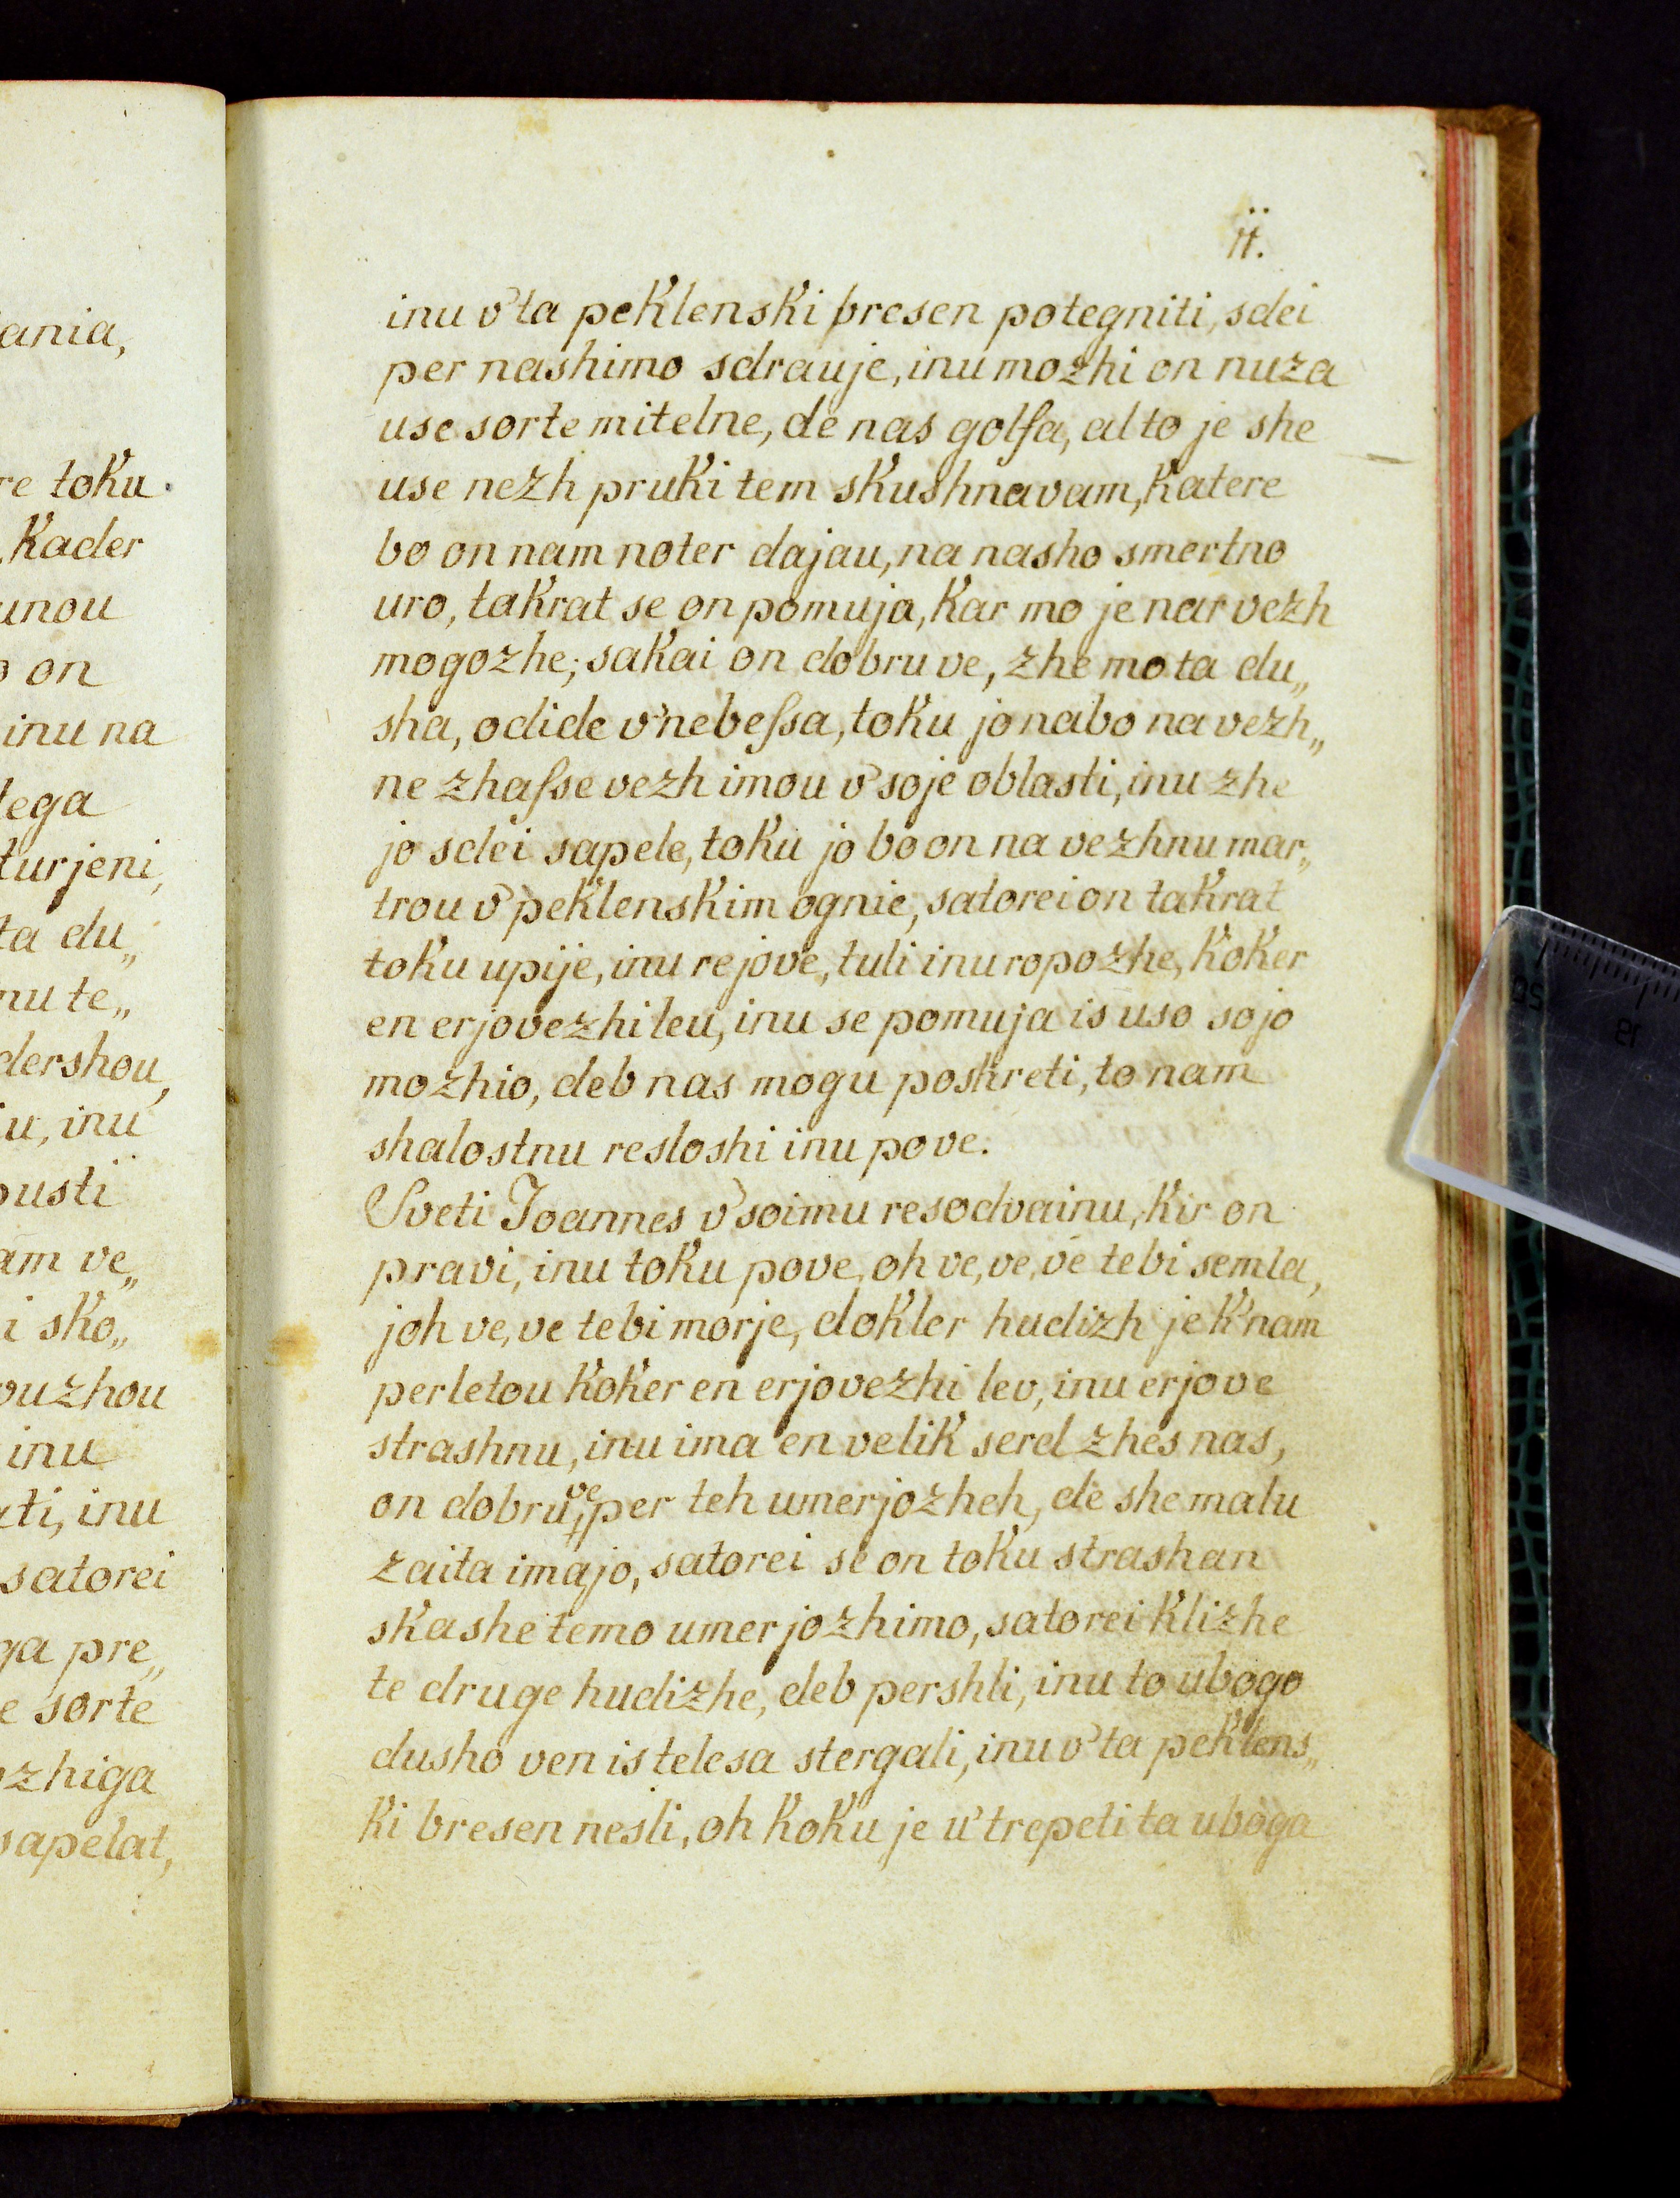 ania,
re toku.
Kader
unou
o on
inu na
lega
turjeni,
ta du„
nu te„
dershou,
iu, inu
pusti
am ve„
i sko„
ouzhou
inu
ati, inu
satorei
ga pre„
e sorte
ozhiga
sapelat,
ïï.
inu v'ta peklenski bresen potegniti, sdei
per nashimo sdrauje, inu mozhi on nuza
use sorte mitelne, de nas golfa, al to je she
use nezh pruki tem skushnavam, katere
bo on nam noter dajau, na nasho smertno
uro, takrat se on pomuja, kar mo je nar vezh
mogozhe; sakai on dobru ve, zhe mo ta du„
sha, odide v'nebeſsa, toku jo nabo na vezh„
ne zhaſse vezh imou v'soje oblasti, inu zhe
jo sdei sapele, toku jo bo on na vezhnu mar„
trou v'peklenskim ognie, satorei on takrat
toku upije, inu rejove, tuli inu ropozhe, koker
en erjovezhi leu, inu se pomuja is uso sojo
mozhio, deb nas mogu poshreti, to nam
shalostnu resloshi inu pove.
Sveti Joannes v'soimu resodvainu, kir on
pravi, inu toku pove, oh ve, ve, ve tebi semla,
joh ve, ve tebi morje, dokler hudizh je k'nam
perletou koker en erjovezhi lev, inu erjove
strashnu, inu ima en velik serd zhes nas,
on dobru ve per teh umerjozheh, de she malu
zaita imajo, satorei se on toku strashan
skashe temo umerjozhimo, satorei klizhe
te druge hudizhe, deb pershli, inu to ubogo
dusho ven is telesa stergali, inu v'ta peklens„
ki bresen nesli, oh koku je u'trepeti ta uboga